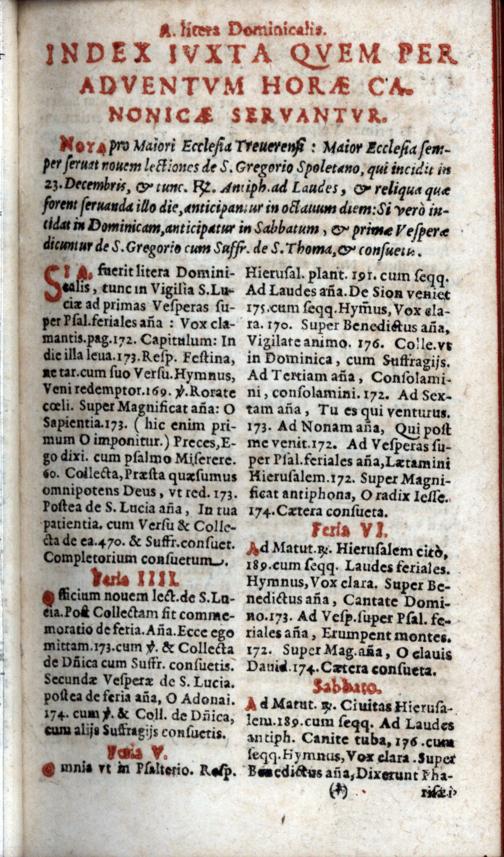 A. litera Dominicalis.
INDEX IVXTA QVEM PER
ADVENTVM HORÆ CA-
NONICÆ SERVANTVR.
NOTA pro Maiori Ecclesia Treuerensi : Maior Ecclesia sem-
per seruat nouem lectiones de S. Gregorio Spoletano, qui incidit in
23. Decembris, & tunc. ℟. Antiph. ad Laudes, & reliqua quæ
forent seruanda illo die, anticipantur in octauum diem: Si verò in-
cidat in Dominicam, anticipatur in Sabbatum, & primæ Vesperæ
dicuntur de S. Gregorio cum Suffr. de S. Thoma, & consuetis.
SI A. fuerit litera Domini-
calis, tunc in Vigilia S. Lu-
ciæ ad primas Vesperas su-
per Psal. feriales aña : Vox cla-
mantis. pag. 172. Capitulum: In
die illa leua. 173. Resp. Festina,
ne tar. cum suo Versu. Hymnus,
Veni redemptor. 169. ℣. Rorate
cœli. Super Magnificat aña: O
Sapientia. 173. ( hic enim pri-
mum O imponitur.) Preces, E-
go dixi. cum psalmo Miserere.
60. Collecta, Præsta quæsumus
omnipotens Deus, vt red. 173.
Postea de S. Lucia aña, In tua
patientia. cum Versu & Colle-
cta de ea. 470. & Suffr. consuet.
Completorium consuetum.
Feria IIII.
Officium nouem lect. de S. Lu-
cia. Post Collectam fit comme-
moratio de feria. Aña. Ecce ego
mittam. 173. cum ℣. & Collecta
de Dñica cum Suffr. consuetis.
Secundæ Vesperæ de S. Lucia.
postea de feria aña, O Adonai.
174. cum ℣. & Coll. de Dñica,
cum alijs Suffragijs consuetis.
Feria V.
Omnia vt in Psalterio. Resp.
Hierusal. plant. 191. cum seqq.
Ad Laudes aña. De Sion veniet
175. cum seqq. Hymus, Vox cla-
ra. 170. Super Benedictus aña,
Vigilate animo. 176. Colle. vt
in Dominica, cum Suffragijs.
Ad Tertiam aña, Consolami-
ni, consolamini. 172. Ad Sex-
tam aña, Tu es qui venturus.
173. Ad Nonam aña, Qui post
me venit. 172. Ad Vesperas su-
per Psal. feriales aña, Lætamini
Hierusalem. 172. Super Magni-
ficat antiphona, O radix Iesse.
174. Cætera consueta.
Feria VI.
Ad Matut. ℟. Hierusalem citò,
189. cum seqq. Laudes feriales.
Hymnus, Vox clara. Super Be-
nedictus aña, Cantate Domi-
no. 173. Ad Vesp. super Psal. fe-
riales aña, Erumpent montes.
172. Super Mag. aña, O clauis
Dauid. 174. Cætera consueta.
Sabbato.
Ad Matut. ℟. Ciuitas Hierusa-
lem. 189. cum seqq. Ad Laudes
antiph. Canite tuba, 176. cum
seqq. Hymnus, Vox clara. Super
Benedictus aña, Dixerunt Pha-
risæi